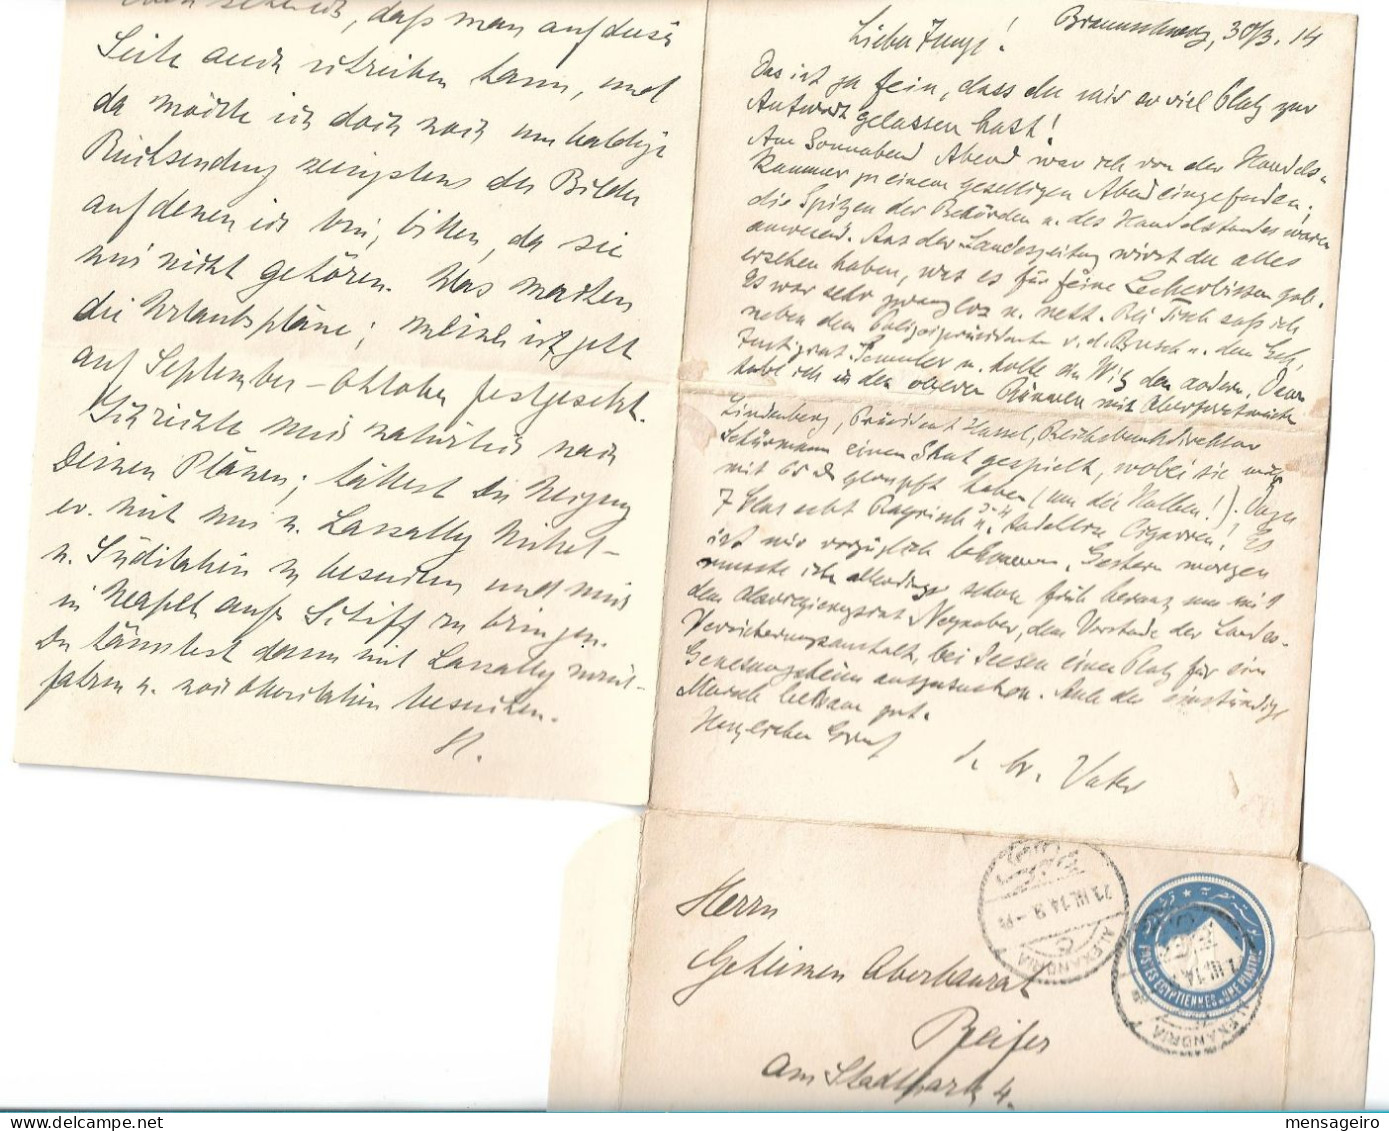 daß man auf dieser
Seite auch schreiben kann, und
da möchte ich doch noch um baldige
Rücksendung wenigstens der Bilder
auf denen ich bin, bitten, da sie
mir nicht gehören. Was machen
die Urlaubspläne; meiner ist jetzt
auf September-Oktober festgesetzt.
Ich richte mich natürlich nach
Deinen Plänen; hättest Du Neigung
ev. mit mir u. Lassally Mittel-
u. Süditalien zu besuchen und mich
in Neapel aufs Schiff zu bringen.
Du könntest dann mit Lassally zurück-
fahren u. noch Oberitalien besuchen.
H.
Braunschweig, 30/3. 14
Lieber Junge!
Das ist ja fein, dass du mir so viel Platz zur
Antwort gelassen hast!
Am Sonnabend Abend war ich von der Handels-
kammer zu einem geselligen Abend eingeladen;
die Spitzen der Behörden u. des Handelsstandes waren
anwesend. Aus der Landeszeitung wirst du alles
ersehen haben, was es für feine Leckerbissen gab.
Es war sehr zwanglos u. nett. Bei Tisch saß ich
neben dem Polizeipräsidenten v. d. Busch u. dem Geh.
Justizrat Semler u. holte ein Witz den andern. Dann
habe ich in den oberen Räumen mit
Lindenberg, Präsident Hassel, Reichsbankdirektor
Schürmann einen Skat gespielt, wobei sie mich
mit 65 d gerupft haben (um die Halben!). Dazu
7 Glas echt Bayrisch u. 2-4 tadellose Cigarren! Es
ist mir vorzüglich bekommen. Gestern morgen
musste ich allerdings schon früh heraus um mit
dem Oberregierungsrat Negenborn, dem Vorstande der Landes-
Versicherungsanstalt, bei Seesen einen Platz für ein
Genesungsheim auszusuchen. Auch der einstündige
Marsch bekam gut.
Herzlichen Gruß
d. tr. Vater
Herrn
Geheimen Oberbaurat
Pfeifer
Am Stadtpark 4.
ALEXANDRIA
21.III.14.9-
POSTES EGYPTIENNES UNE PIASTRE
ALEXANDRIA
mensageiro